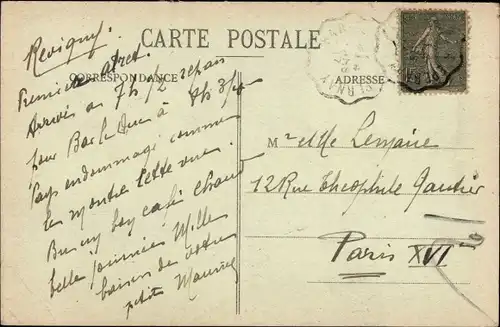 CARTE POSTALE
CORRESPONDANCE
ADRESSE
Revigny.
Premier arret.
Arrivés a 7h 1/2 repars
pour Bar le Duc à 8h 3/4
Pays endommagé comme
le montre cette vue.
Bu un bon café chaud
belle journée Mille
baisers de votre
petit Maurice
Mr et Me Lemaire
12 Rue Théophile Gautier
Paris XVIe